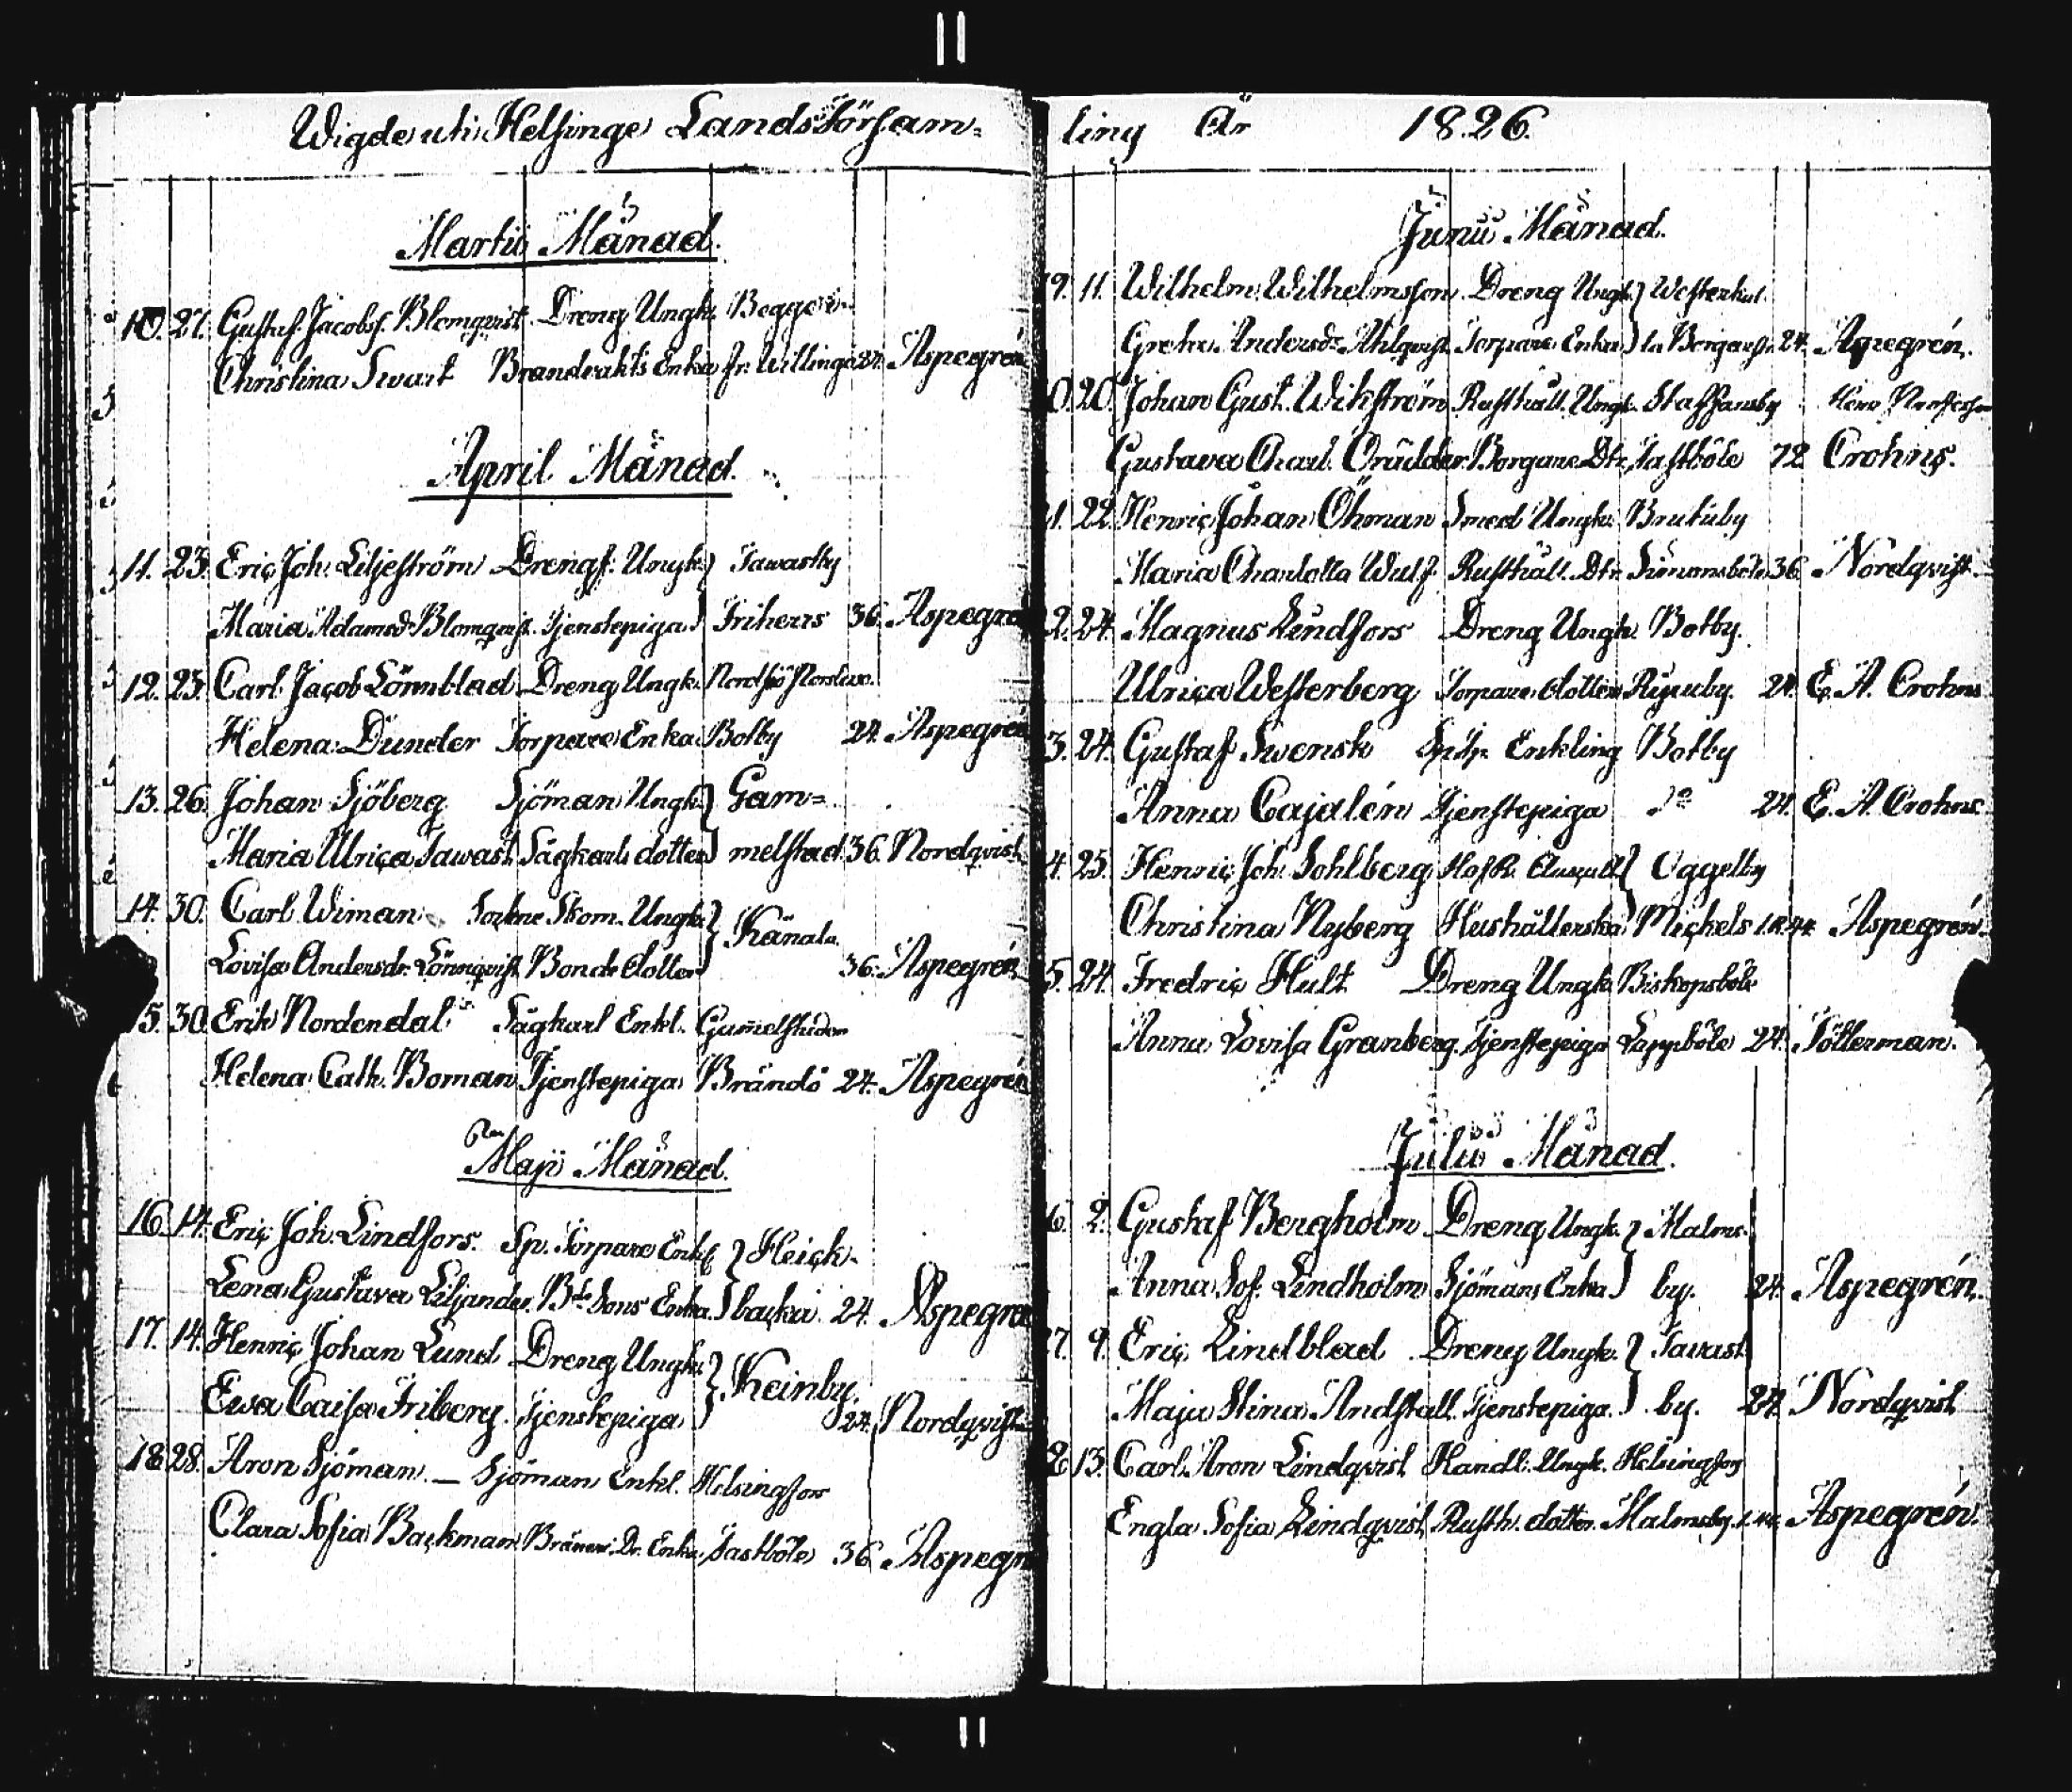 Wigde uti Helsinge Lands Församling År 1826.
Martii Månad.
10. 27. Gustaf Jacobss. Blomqvist Dreng Ungk.
Christina Swart Enka fr. 24. Aspegrén
April Månad.
11. 23. Eric Joh. Liljeström Drengf. Ungk. Tawastby
Maria Adamsdr Blomqvist Tjenstepiga Friherrs 36. Aspegrén
12. 23. Carl Jacob Lönnblad Dreng Ungk. Nordsjö
Helena Dunder Torpare Enka Botby 24. Aspegrén
13. 26. Johan Sjöberg Sjöman Ungk. Gam=
Maria Ulrica Tawast Sågkarls dotter melstad 36. Nordqvist
14. 30. Carl Wiman Sockne Skom. Ungk. Kånala
Lovisa Andersdr. Lönnqvist Bonde dotter 36. Aspegrén
15. 30. Erik Nordendal Sågkarl Enkl. Gammelstaden
Helena Cath. Boman Tjenstepiga Brändö 24. Aspegrén
Maji Månad.
16. 14. Eric Joh. Lindfors. Sp. Torpare Enkl. Heick-
Lena Gustava Liljander. Bde Sons Enka backa 24. Aspegrén
17. 14. Henric Johan Lund Dreng Ungk. Keinby
Ewa Caisa Friberg. Tjenstepiga 24. Nordqvist
18. 28. Aron Sjöman — Sjöman Enkl. Helsingfors
Clara Sofia Backman Enka Tastböle 36. Aspegr
Junii Månad.
19. 11. Wilhelm Wilhelmsson Dreng Ungk. Westerkul-
Greta Andersdr Ahlqvist Torpare Enka la 24. Aspegrén.
20. Johan Gust. Wikström Rusthåll. Ungk. Staffansby Herr Professor
Gustava Charl. Borgare Dtr. Tastböle 72 Crohns.
22. Henric Johan Öhman Smed Ungk. Brutuby
Maria Charlotta Wulf Rusthåll. Dtr. Simonsböle 36. Nordqvist
24. Magnus Lindfors Dreng Ungk. Botby.
Ulrica Westerberg Torpare dotter 24. E. A. Crohns
24. Gustaf Swensk Enkling Botby
Anna Cajalén Tjenstepiga do 24. E. A. Crohns
25. Henric Joh. Sohlberg Hof R. Oggelby
Christina Nyberg Hushållerska Mickels Aspegrén.
24. Fredric Hult Dreng Ungk. Biskopsböle
Anna Lovisa Granberg. Tjenstepiga Lappböle 24. Töllerman.
Julii Månad.
2. Gustaf Bergholm Dreng Ungk. Malms-
Anna Sof. Lindholm Sjömans Enka by. 24. Aspegrén.
9. Eric Lindblad Dreng Ungk. Tawast
Maja Stina Andstall Tjenstepiga by. 24. Nordqvist
13. Carl Aron Lindqvist Handl. Ungk. Helsingfors
Engla Sofia Lindqvist Rusth. dotter. Malmsby. Aspegrén.